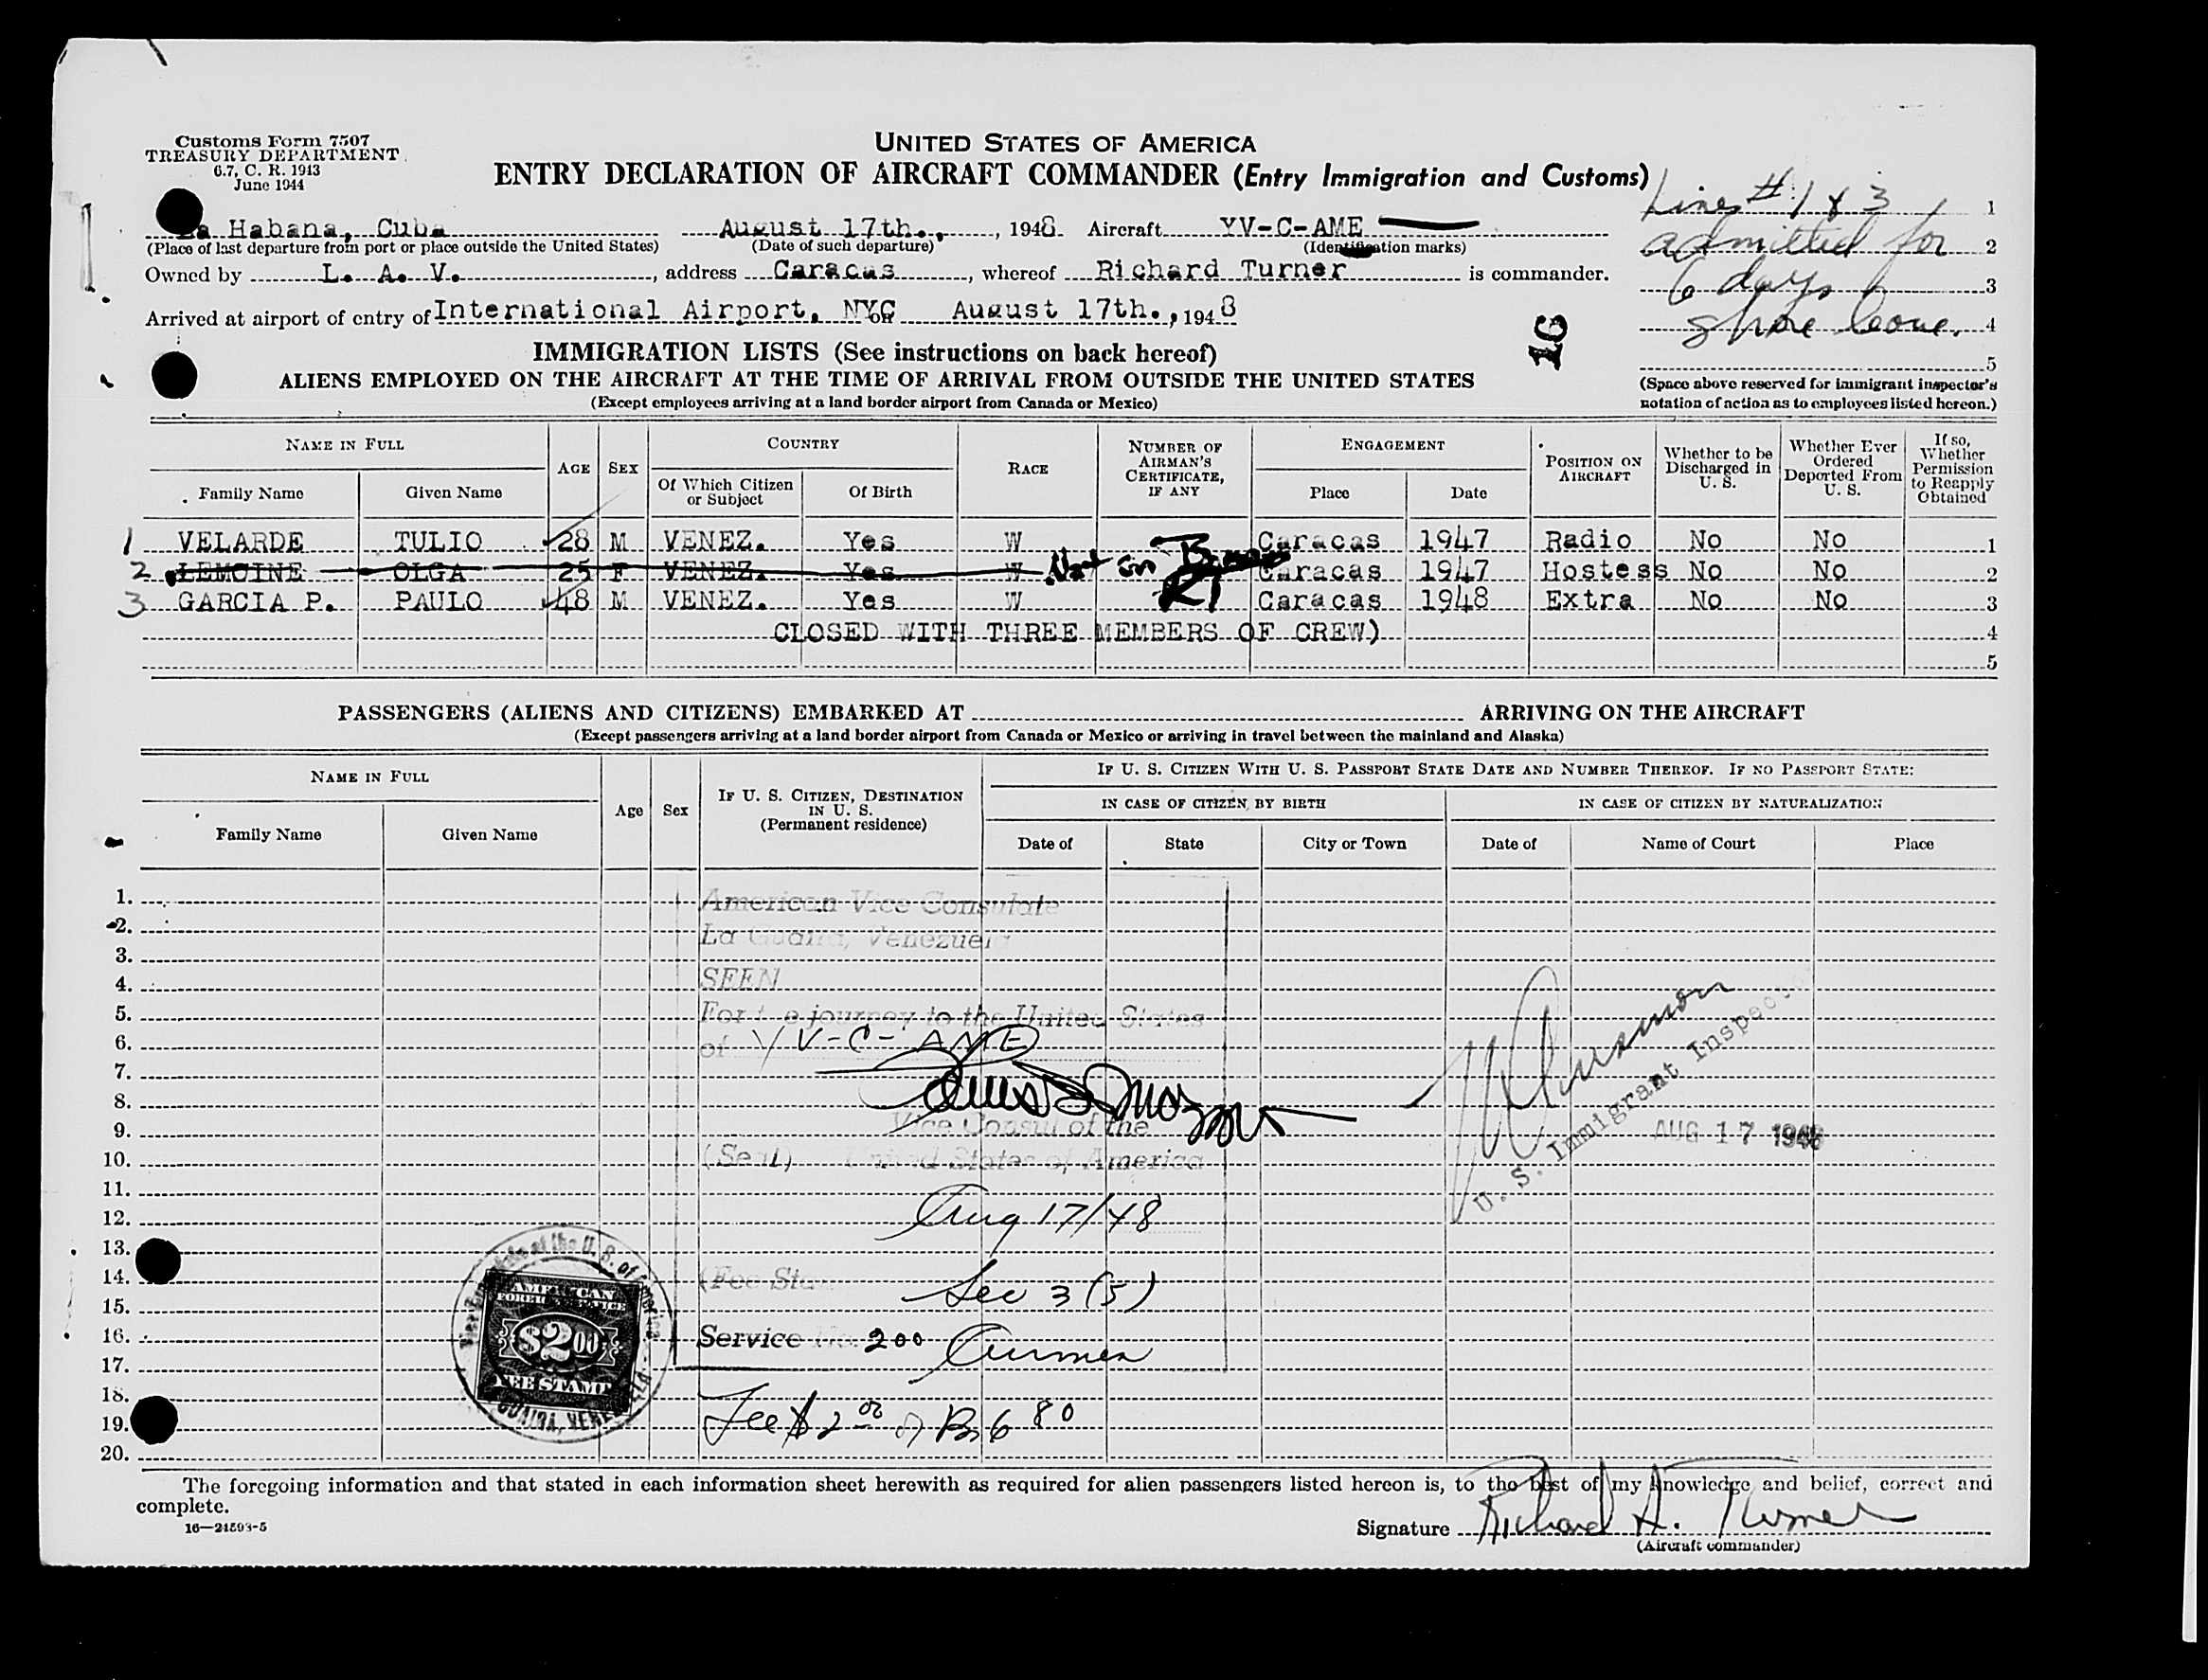 Customs Form 7507
TREASURY DEPARTMENT
6.7, C. R. 1943
June 1944
UNITED STATES OF AMERICA
ENTRY DECLARATION OF AIRCRAFT COMMANDER (Entry Immigration and Customs)
Lines # 1 & 3 1
admitted for 2
6 days 3
shore leave. 4
5
(Space above reserved for immigrant inspector's notation of action as to employees listed hereon.)
La Habana, Cuba August 17th., , 1948 Aircraft YV-C-AME
(Place of last departure from port or place outside the United States) (Date of such departure) (Identification marks)
Owned by L. A. V. , address Caracas , whereof Richard Turner is commander.
Arrived at airport of entry of International Airport, NYC on August 17th., , 1948
16
IMMIGRATION LISTS (See instructions on back hereof)
ALIENS EMPLOYED ON THE AIRCRAFT AT THE TIME OF ARRIVAL FROM OUTSIDE THE UNITED STATES
(Except employees arriving at a land border airport from Canada or Mexico)
NAME IN FULL AGE SEX COUNTRY RACE NUMBER OF AIRMAN'S CERTIFICATE, IF ANY ENGAGEMENT POSITION ON AIRCRAFT Whether to be Discharged in U. S. Whether Ever Ordered Deported From U. S. If so, Whether Permission to Reapply Obtained
Family Name Given Name Of Which Citizen or Subject Of Birth Place Date
1 VELARDE TULIO 28 M VENEZ. Yes W Caracas 1947 Radio No No 1
2 LEMOINE OLGA 25 F VENEZ. Yes W Not on Caracas 1947 Hostess No No 2
3 GARCIA P. PAULO 48 M VENEZ. Yes W RT Caracas 1948 Extra No No 3
CLOSED WITH THREE MEMBERS OF CREW) 4
5
PASSENGERS (ALIENS AND CITIZENS) EMBARKED AT ARRIVING ON THE AIRCRAFT
(Except passengers arriving at a land border airport from Canada or Mexico or arriving in travel between the mainland and Alaska)
NAME IN FULL Age Sex IF U. S. CITIZEN, DESTINATION IN U. S. (Permanent residence) IF U. S. CITIZEN WITH U. S. PASSPORT STATE DATE AND NUMBER THEREOF. IF NO PASSPORT STATE:
IN CASE OF CITIZEN BY BIRTH IN CASE OF CITIZEN BY NATURALIZATION
Family Name Given Name Date of State City or Town Date of Name of Court Place
1. American Vice Consulate
2. La Guaira, Venezuela
3.
4. SEEN
5. For the journey to the United States
6. of YV-C-AME
7.
8.
9. Vice Consul of the
10. (Seal) United States of America
U. S. Immigrant Inspector
AUG 17 1948
11.
12. Aug 17/48
13.
14. (Fee Stamp
15. Sec 3 (5)
16. Service No. 200 Airmen
17.
18.
19. Fee $ 2 00 Bs 6 80
20.
Vice Consulate of the U. S. of America
LA GUAIRA, VENEZUELA
AMERICAN
FOREIGN SERVICE
$2.00
FEE STAMP
The foregoing information and that stated in each information sheet herewith as required for alien passengers listed hereon is, to the best of my knowledge and belief, correct and
complete.
16—24593-5
Signature Richard A. Turner
(Aircraft commander)